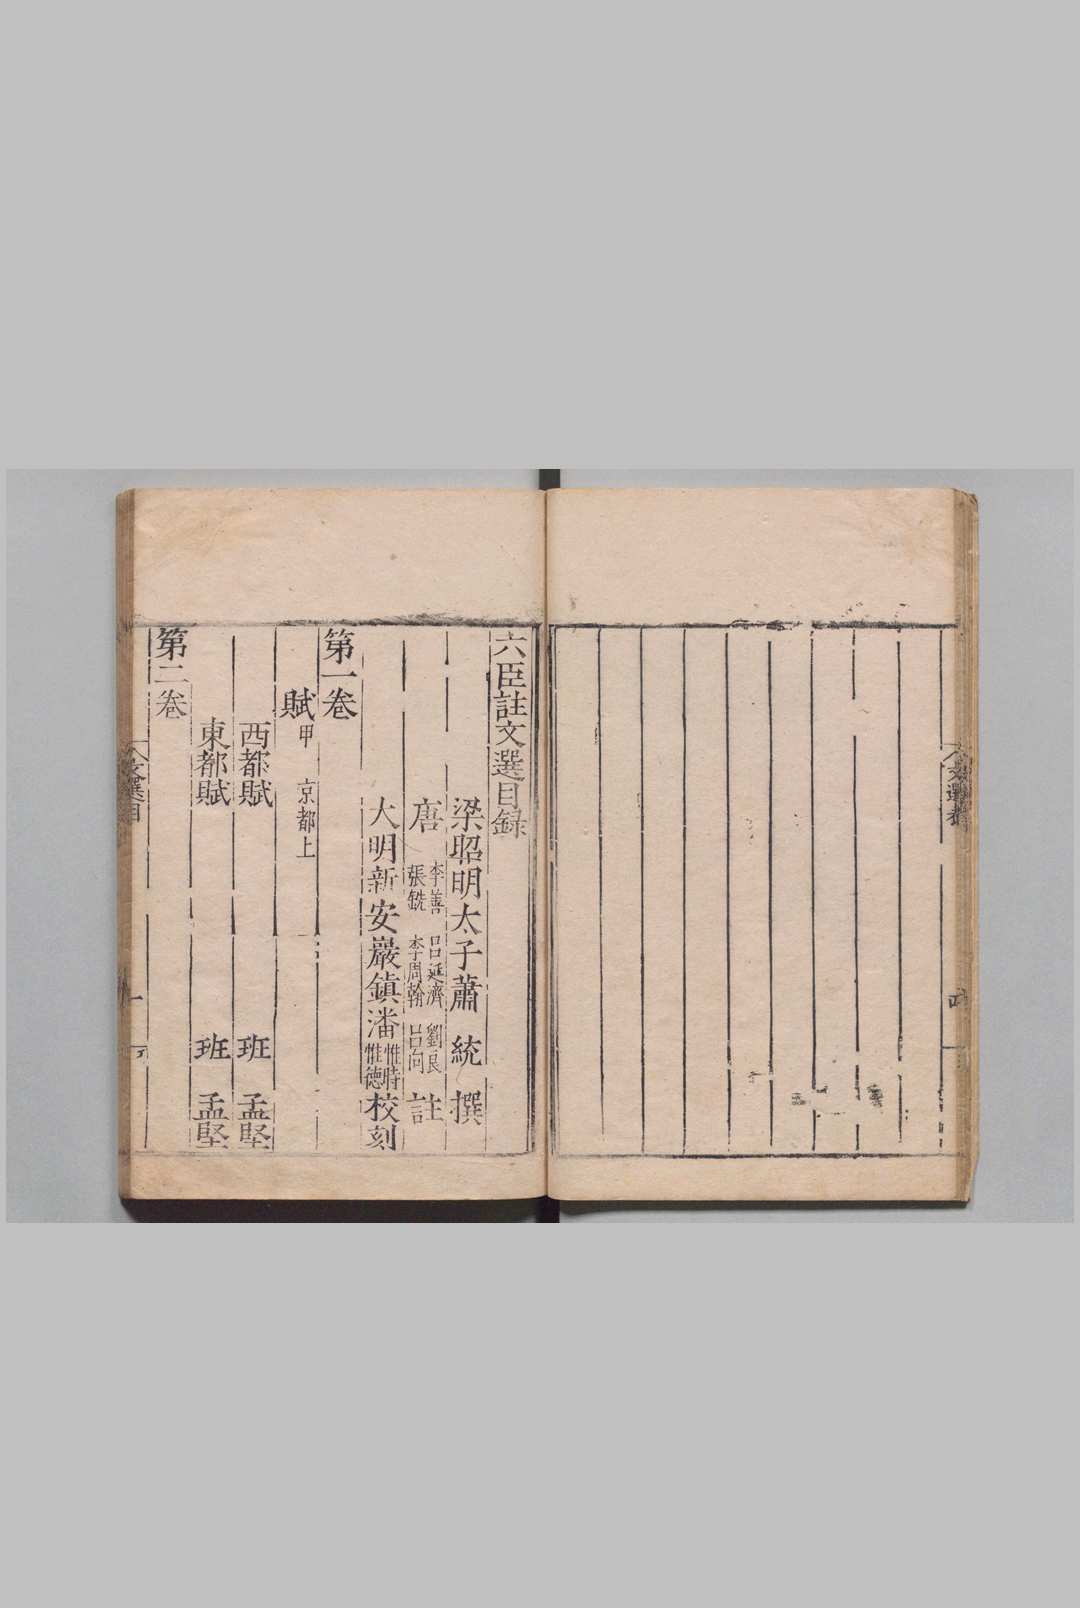 六臣註文選目録
梁昭明太子蕭　統　撰
唐　李善　呂延濟　劉良　張銑　李周翰　呂向　註
大明新安巖鎮潘惟時惟德校刻
第一卷
賦甲　京都上
西都賦　班　孟堅
東都賦　班　孟堅
第二卷
文選目
一